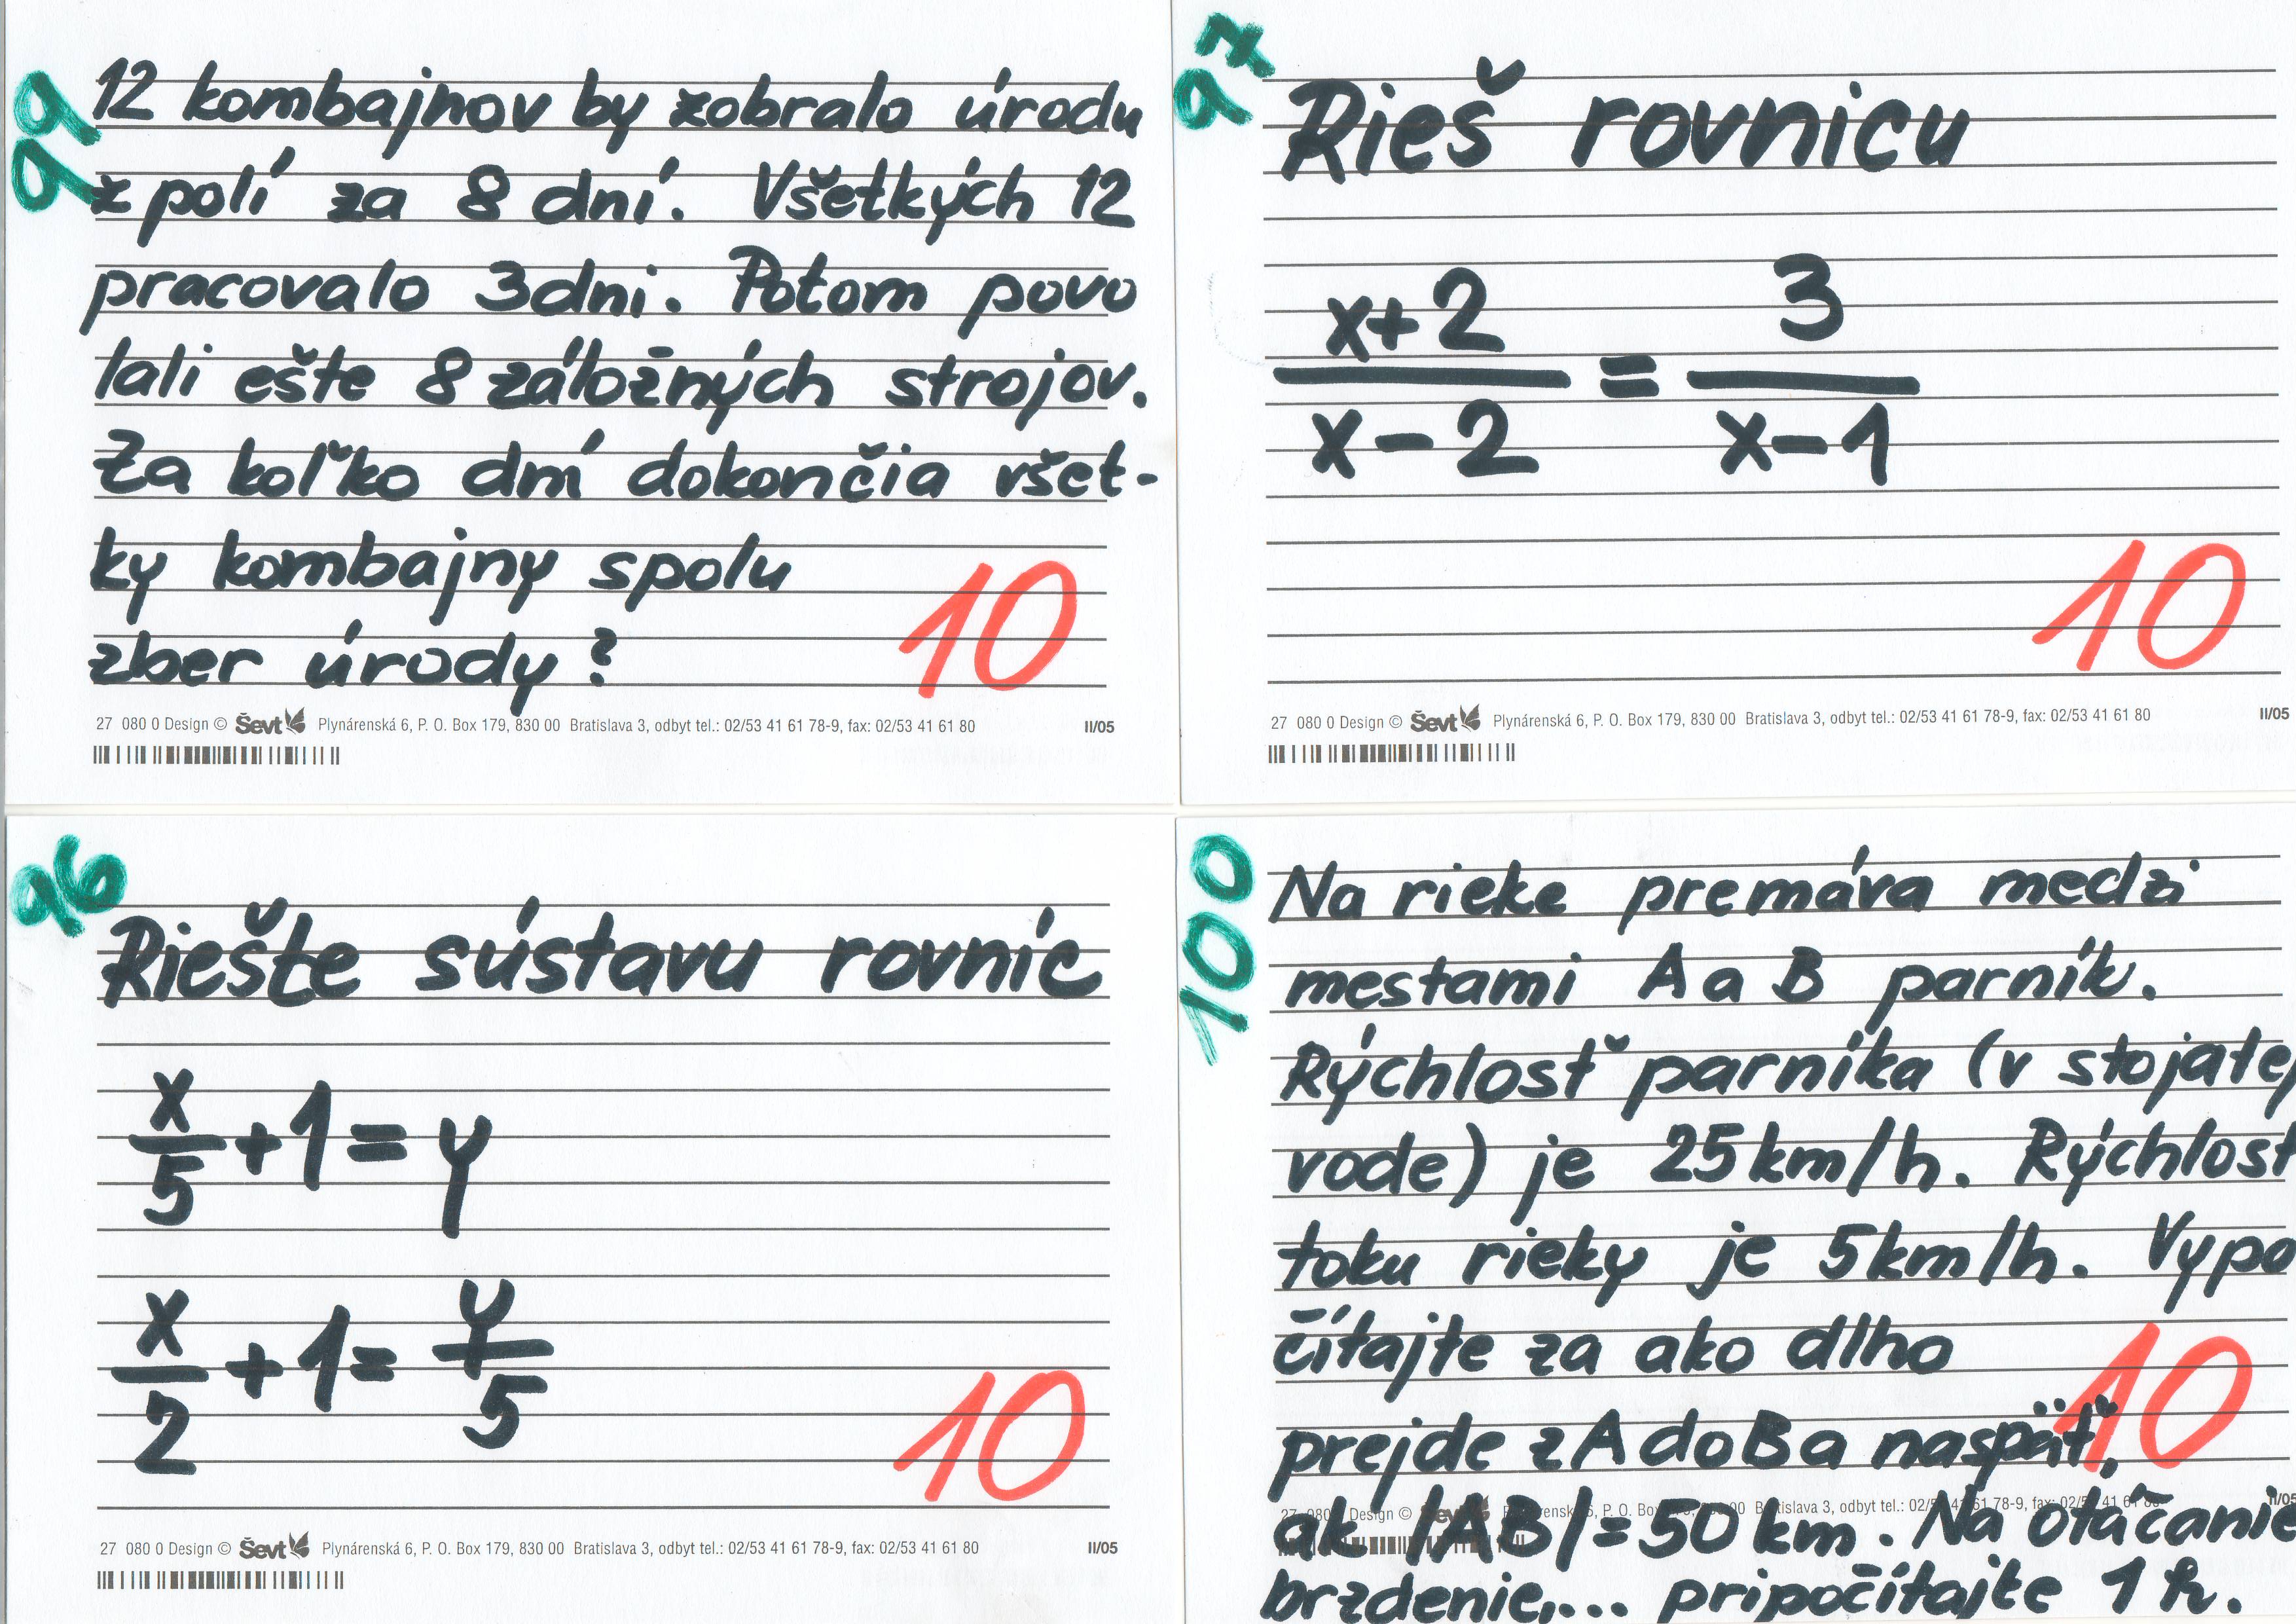 99
12 kombajnov by zobralo úrodu
z polí za 8 dní. Všetkých 12
pracovalo 3dni. Potom povo
lali ešte 8 záložných strojov.
Za koľko dní dokončia všet-
ky kombajny spolu
zber úrody?
10
27 080 0 Design © Ševt Plynárenská 6, P. O. Box 179, 830 00 Bratislava 3, odbyt tel.: 02/53 41 61 78-9, fax: 02/53 41 61 80 II/05
97
Rieš rovnicu
x+2 3
=
x-2 x-1
10
27 080 0 Design © Ševt Plynárenská 6, P. O. Box 179, 830 00 Bratislava 3, odbyt tel.: 02/53 41 61 78-9, fax: 02/53 41 61 80 II/05
96
Riešte sústavu rovníc
x/5 + 1 = y
x/2 + 1 = y/5
10
27 080 0 Design © Ševt Plynárenská 6, P. O. Box 179, 830 00 Bratislava 3, odbyt tel.: 02/53 41 61 78-9, fax: 02/53 41 61 80 II/05
100
Na rieke premáva medzi
mestami A a B parník.
Rýchlosť parníka (v stojatej
vode) je 25 km/h. Rýchlosť
toku rieky je 5 km/h. Vypo
čítajte za ako dlho
10
prejde z A do B a naspäť,
27 080 0 Design © Ševt Plynárenská 6, P. O. Box 179, 830 00 Bratislava 3, odbyt tel.: 02/53 41 61 78-9, fax: 02/53 41 61 80 II/05
ak |AB| = 50 km. Na otáčanie
brzdenie,... pripočítajte 1 h.